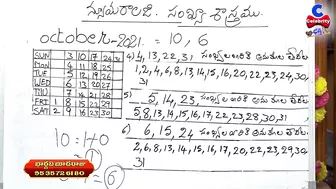 న్యూమరాలజీ. సంఖ్యా శాస్త్రము.
Celebrity
october-2021. = 10, 6
SUN 3 10 17 24 31
MON 4 11 18 25
TUE 5 12 19 26
WED 6 13 20 27
THU 7 14 21 28
FRI 1 8 15 22 29
SAT 2 9 16 23 30
4) 4, 13, 22, 31 సంఖ్యల వారికి
1, 2, 4, 6, 8, 13, 14, 15, 16, 17, 20, 22, 23, 24, 30,
31
5) 5, 14, 23. సంఖ్యల వారికి
5, 8, 13, 14, 15, 16, 17, 22, 23, 28, 30, 31
6) 6, 15, 24 సంఖ్యల వారికి
2, 6, 8, 13, 14, 15, 16, 17, 20, 22, 23, 29, 30
31
10 = 1+0
6
98357 26180